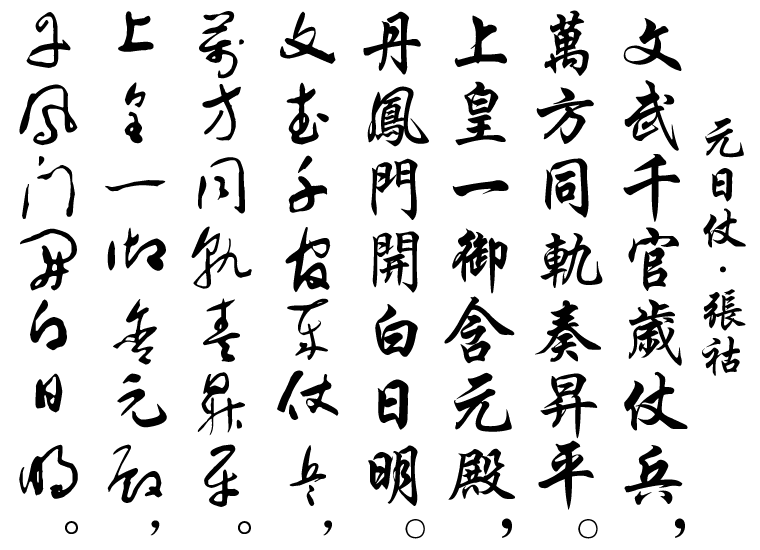 元日仗·張祜
文武千官歲仗兵，
萬方同軌奏昇平。
上皇一御含元殿，
丹鳳門開白日明。
文武千官歲仗兵，
萬方同軌奏昇平。
上皇一御含元殿，
丹鳳門開白日明。